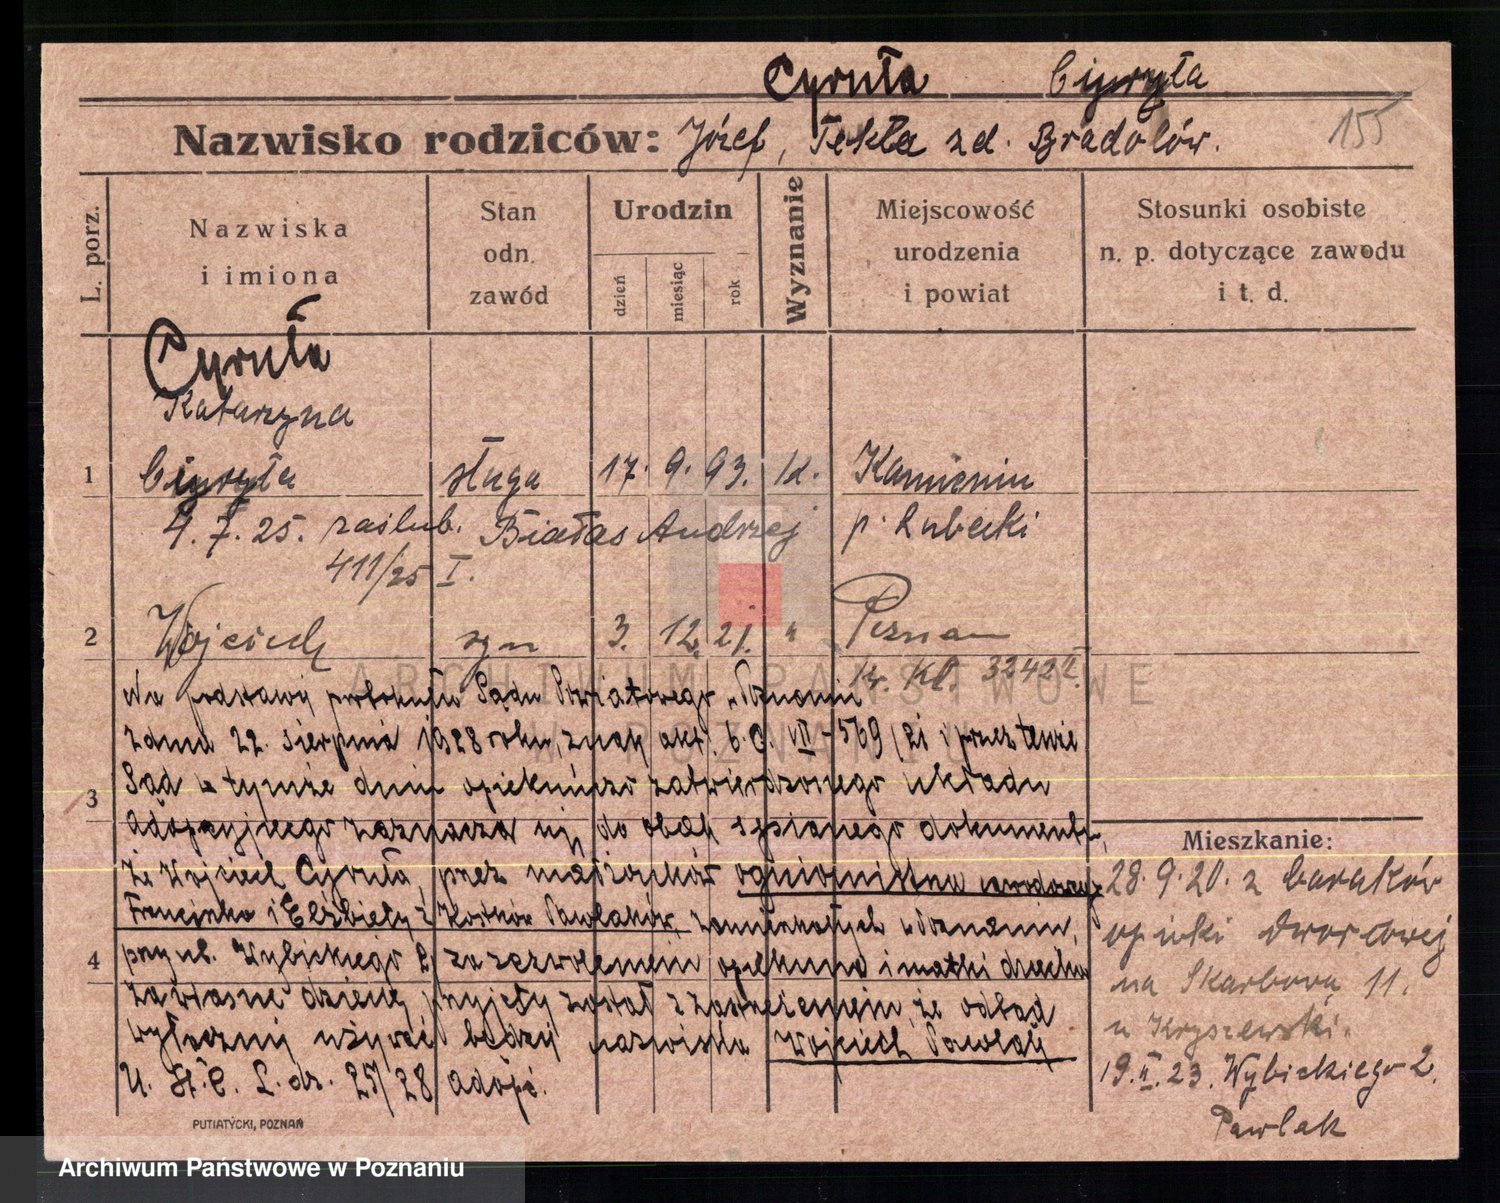 Cyruła Ciyryła
Nazwisko rodziców: Józef, Tekla zd. Bradolów.
155
L. porz.
Nazwiska
i imiona
Stan
odn.
zawód
Urodzin
dzień
miesiąc
rok
Wyznanie
Miejscowość
urodzenia
i powiat
Stosunki osobiste
n. p. dotyczące zawodu
i t. d.
Cyruła
Katarzyna
1 Ciyryła sługa 17. 9. 93. k. Kamieniu
4. 7. 25. zaślub. Białas Andrzej p. Lubecki
411/25 I.
2 Wojciech syn 3. 12. 21. " Poznan
Kr. Kl. 3242 II.
Na podstawie Sądu Powiatowego w Poznaniu
z dnia 22. sierpnia 1928 roku, znak akt. 6. O. VII - 569/21 przez tenże
Sąd w tymże dniu opiekuńczo zatwierdzonego układu
3
adopcyjnego zaznacza się, do obok spisanego dokumentu,
że Wojciech Cyruła, przez małżonków ogniomistrza zawodowego
Franciszka i Elżbiety z Kostków Pawlaków, zamieszkałych w Poznaniu,
4
przy ul. Wybickiego 2, za zezwoleniem opiekuna i matki dziecka
za własne dziecię przyjęty został z zastrzeżeniem, że odtąd
wyłącznie używać będzie nazwiska Wojciech Pawlak
U. St. C. L. dz. 25/28 adopc.
Mieszkanie:
28. 9. 20. z baraków
opieki dworcowej
na Skarbową 11.
u Kryszewski.
19. II. 23. Wybickiego 2.
Pawlak
PUTIATYCKI, POZNAŃ
ARCHIWUM PAŃSTWOWE
W POZNANIU
Archiwum Państwowe w Poznaniu